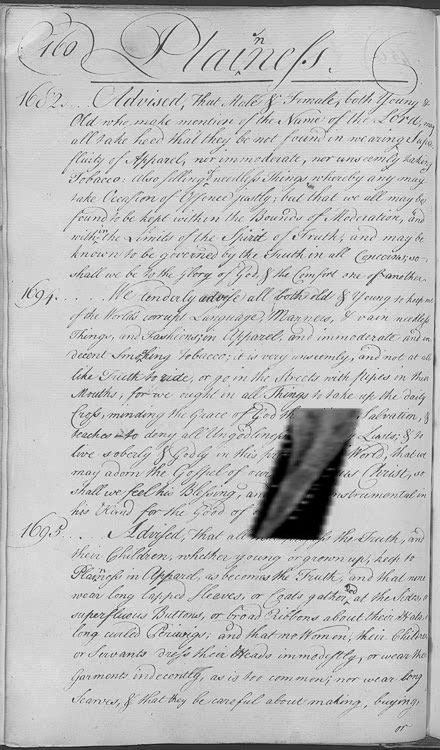 160
Plainness.
1682... Advised, that Male & Female, both Young &
Old who make mention of the Name of the Lord, may
all take heed that they be not found in wearing Supe
fluity of Apparel, nor immoderate, nor unseemly taking
Tobacco: also selling needless Things whereby any may
take Occasion of Offence justly; but that we all may be
found to be kept within the Bounds of Moderation, and
within the Limits of the Spirit of Truth; and may be
known to be governed by the Truth in all Concerns, so
shall we be to the Glory of God, & the Comfort one of another.
1694..... We tenderly advise all both old & Young to keep out
of the Worlds corrupt Language, Manners, & vain needless
Things, and Fashions, in Apparel; and immoderate and in
decent Smoking tobacco; it is very unseemly, and not at all
like Truth to ride, or go in the Streets with pipes in their
Mouths; for we ought in all Things to take up the daily
Cross, minding the Grace of God Salvation, &
teaches to deny all Ungodliness Lusts; & to
live soberly & Godly in this World, that we
may adorn the Gospel of our Christ, so
shall we feel his Blessing, and instrumental in
his Hand for the Good of
1695... Advised, that all the Truth, and
their Children, whether young or grown up, keep to
Plainness in Apparel, as becomes the Truth, and that none
wear long lapped Sleaves, or Coats gathered at the Sides, or
superfluous Buttons, or broad Ribbons about their Hats, or
long curled Periwigs; and that no Women, their Children
or Servants dress their Heads immodestly, or wear their
Garments indecently, as is too common; nor wear long
Scarves, & that they be careful about making, buying,
or